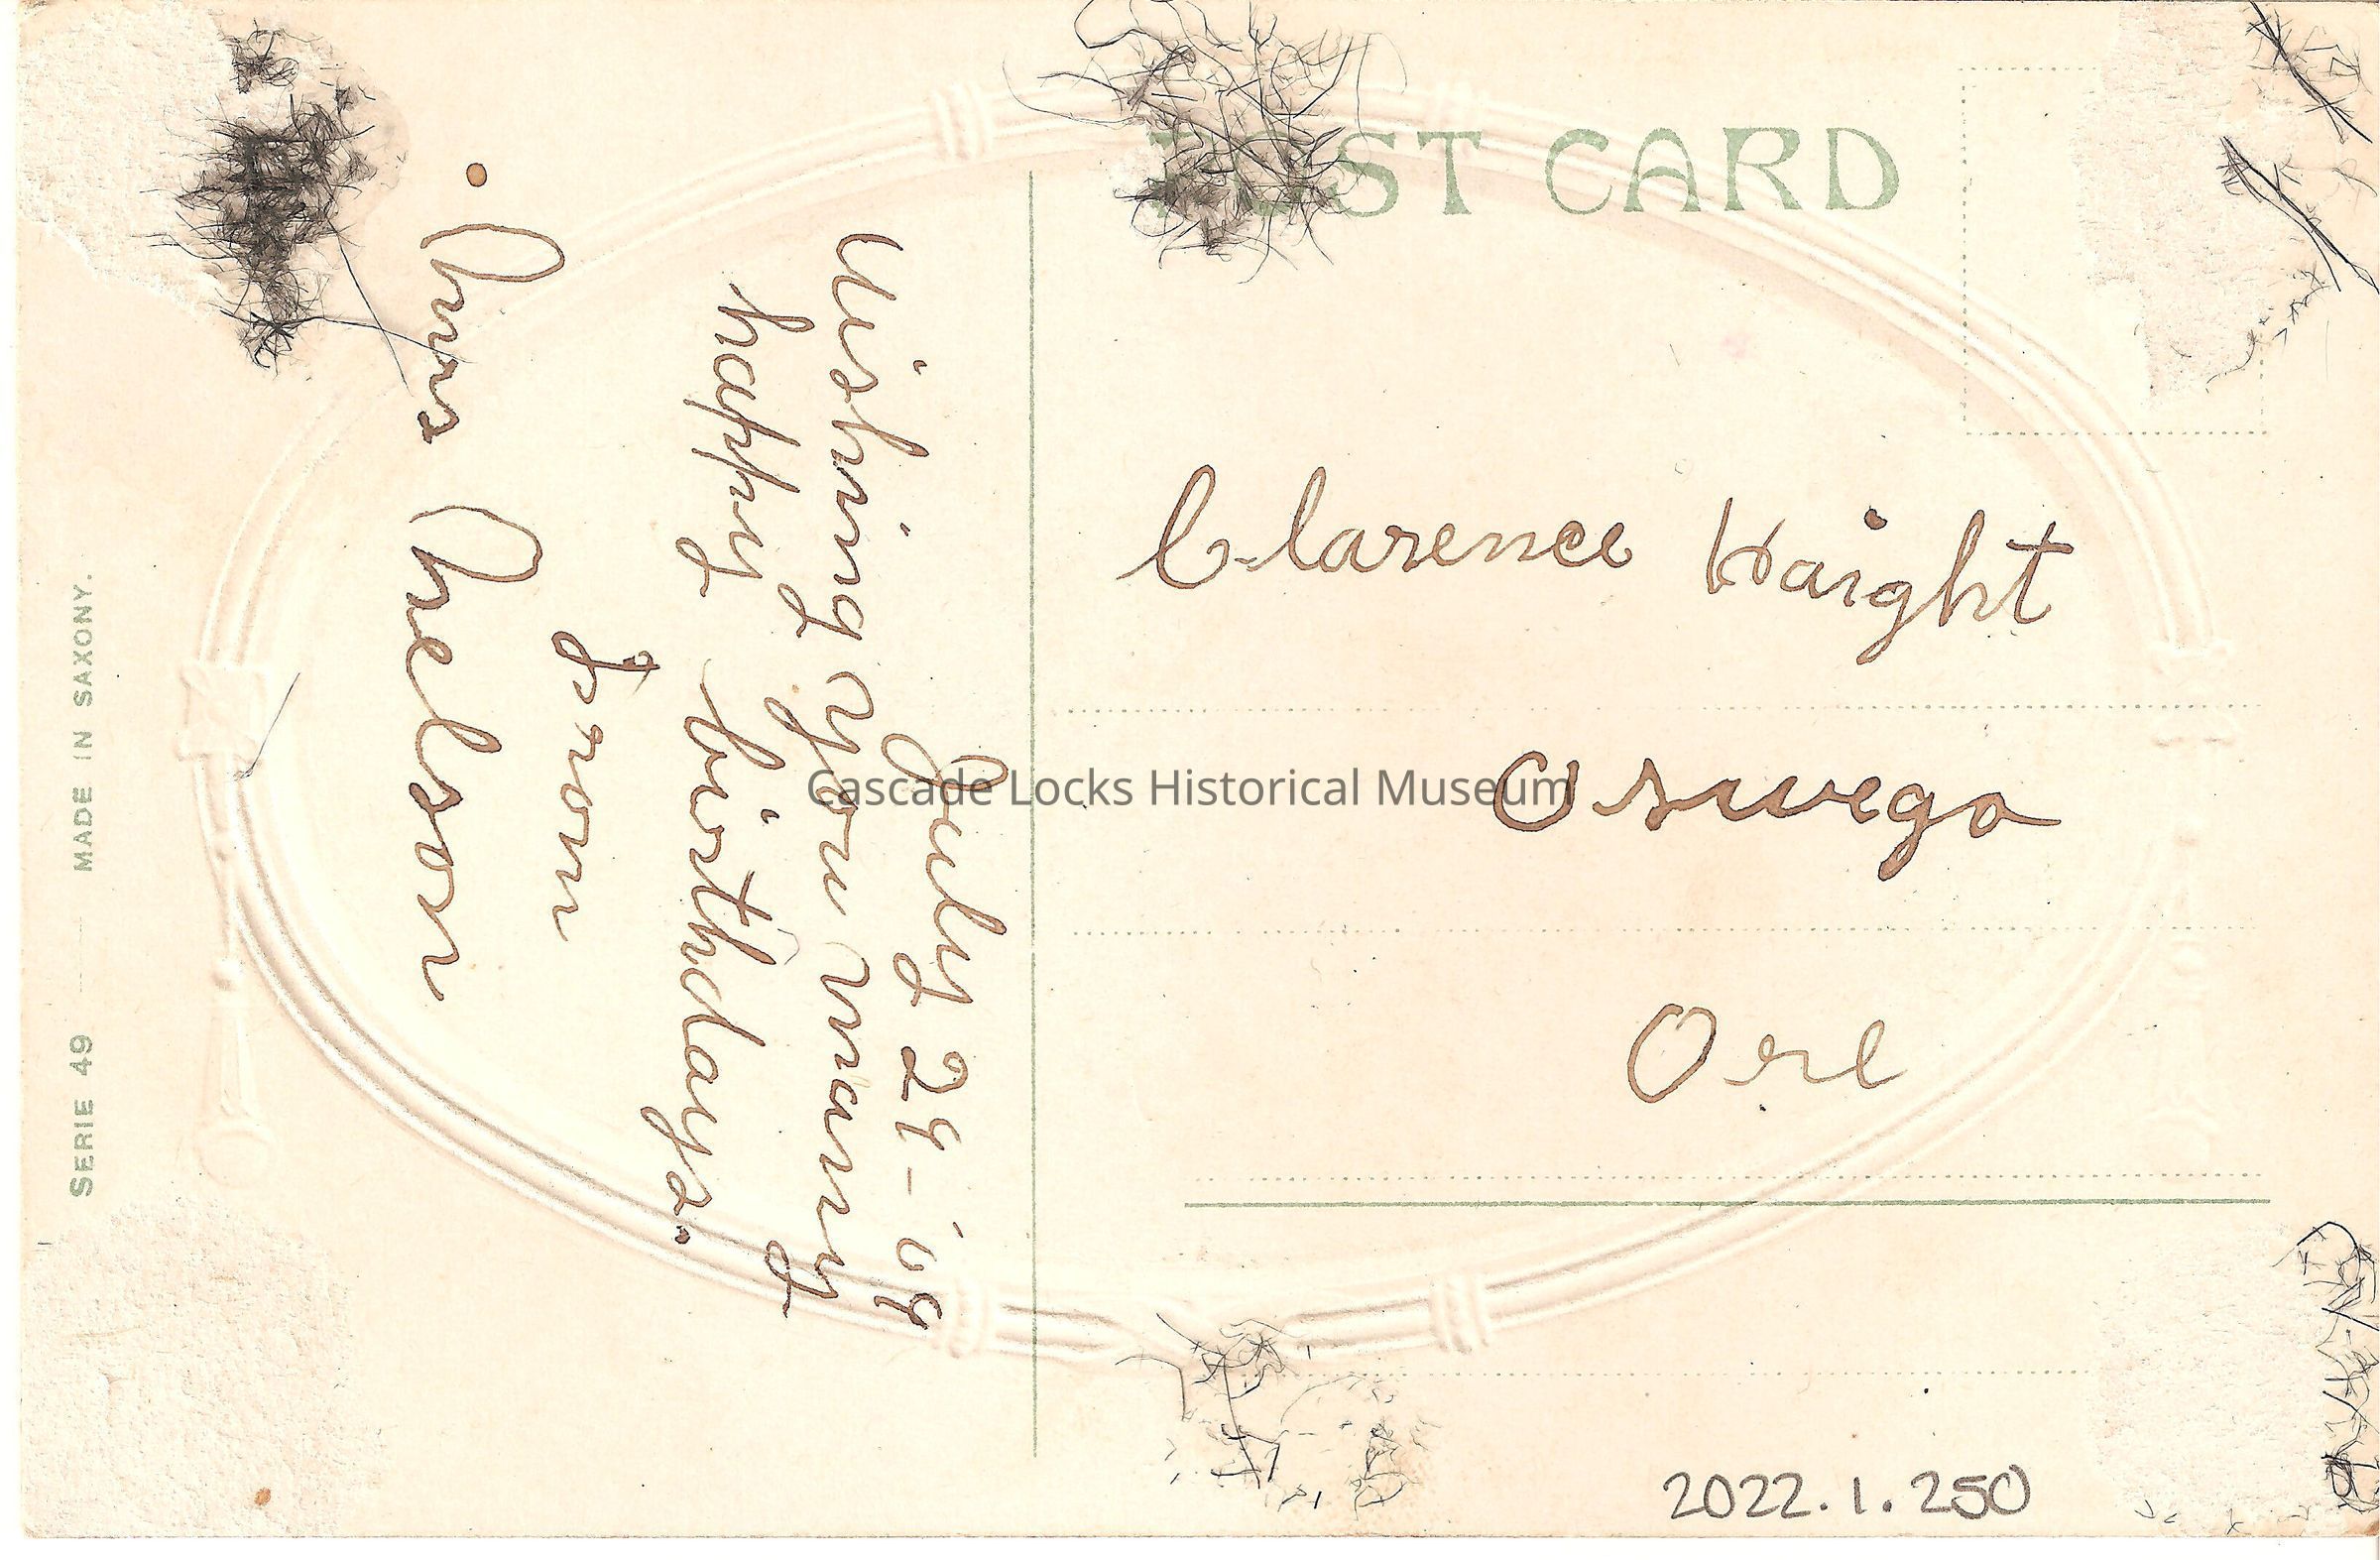 POST CARD
July 29-'09
Wishing you many
happy birthdays.
from
Mrs Nelson
Clarence Haight
Oswego
Ore
SERIE 49 MADE IN SAXONY.
Cascade Locks Historical Museum
2022.1.250